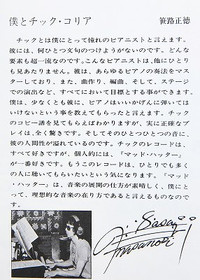 僕とチック・コリア
笹路正徳
チックとは僕にとって憧れのピアニストと言えます。
彼には、何ひとつ文句のつけようがないのです。どんな
要素も超一流なのです。こんなピアニストは、他にひとり
も見あたりません。彼は、あらゆるピアノの奏法をマス
ターしており、また、曲作り、編曲、そして、ステージ
での演出など、すべてにおいて注目する事ができます。
僕は、少なくとも彼に、ピアノはいいかげんに弾いては
いけないという事を教えてもらったと言えます。チック
のコピー譜を見てもらえばわかりますが、実に正確なプ
レイは、全く驚きです。そしてそのひとつひとつの音に、
彼の人間性が溢れているのです。チックのレコードは、
すべて好きですが、個人的には、「マッド・ハッター」
が一番好きです。もうこのレコードは、ひとりでも多く
の人に聴いてもらいたいという気になります。「マッド
・ハッター」は、音楽の展開の仕方が素晴しく、僕にと
って、理想的な音楽の在り方であると言えるものなので
す。